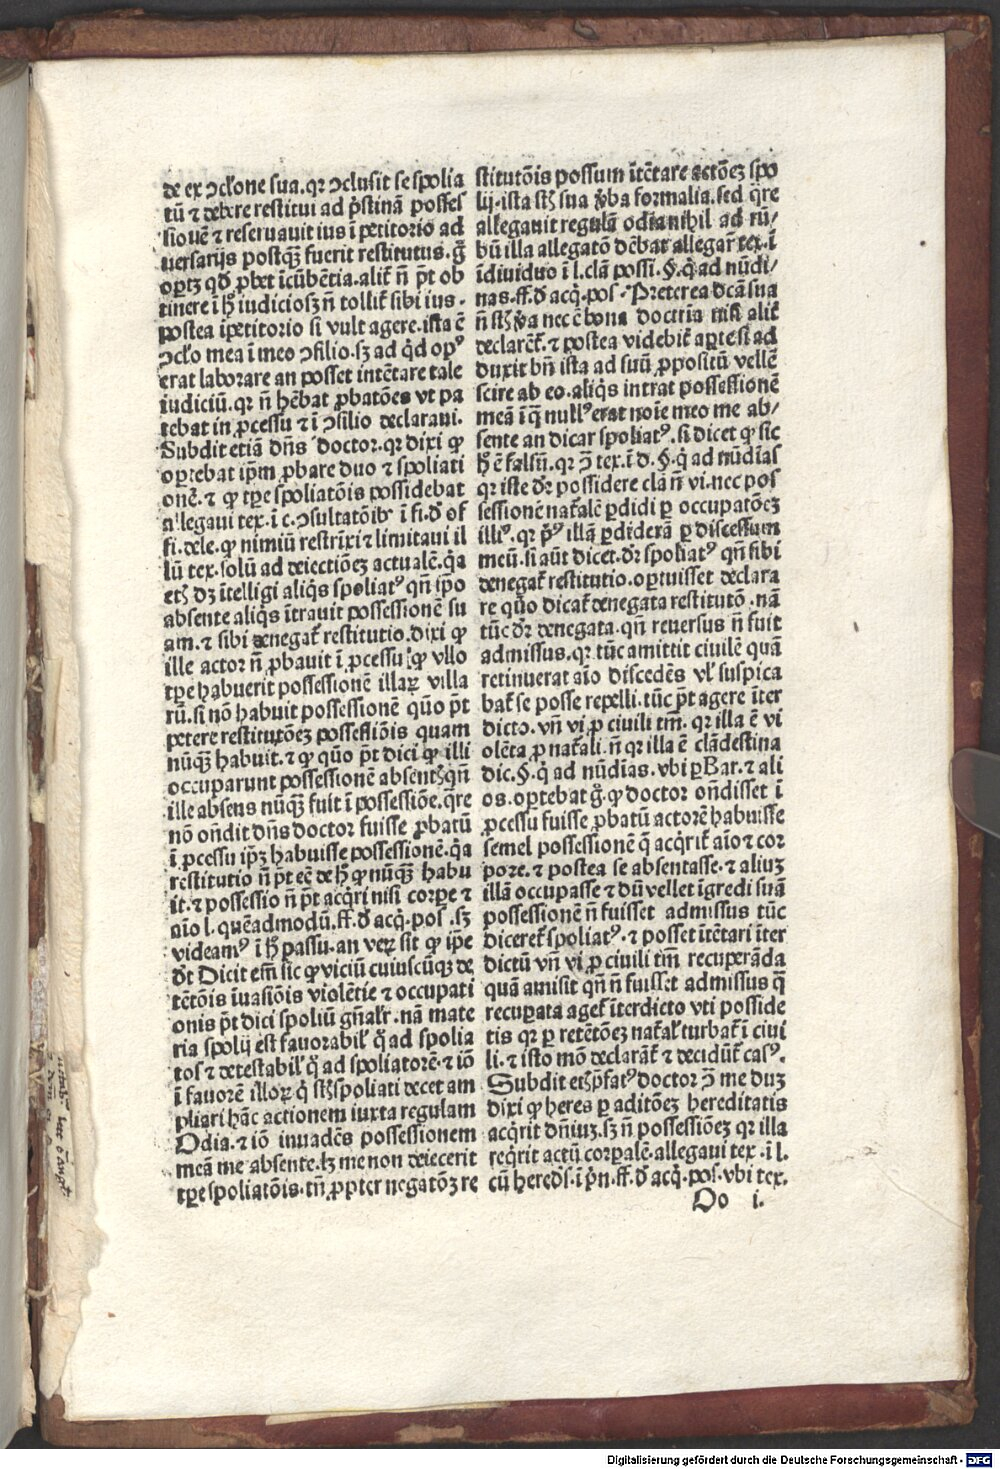 de ex ↄcĺone sua.qꝛ ↄclusit se spolia
tũ ⁊ debere restitui ad pꝛ̃stinã posses
sionẽ ⁊ reseruauit ius ĩ petitorio ad
uersarijs postqꝫ fuerit restitutus.g̃
opꝫ qđ ꝓbet ĩcũbẽtia.alit̃ ñ p̃t ob
tinere ĩ h̃ iudicio sꝫ ñ tollit̃ sibi ius.
postea ĩpetitorio si vult agere.ista ẽ
ↄcĺo mea ĩ meo ↄsilio.sꝫ ad qͥd opꝰ
erat laborare an posset intẽtare tale
iudiciũ.qꝛ ñ hẽbat ꝓbatões vt pa
tebat in ꝓcessu ⁊ ĩ ↄsilio declaraui.
Subdit etiã dñs doctor.qꝛ dixi ꝙ
oportebat ip̃m ꝓbare duo ⁊ spoliati
onẽ.⁊ ꝙ tꝑe spoliatõis possidebat
allegaui tex.ĩ c.ↄsultatõib̛ ĩ fi.đ of
fi.dele.ꝙ nimiũ restrĩxi ⁊ limitaui il
lũ tex.solũ ad deiectiõeꝫ actualẽ.q̃a
etꝫ dꝫ ĩtelligi aliqͥs spoliatꝰ qñ ip̃o
absente aliqͥs ĩtrauit possessionẽ su
am.⁊ sibi denegat̃ restitutio.dixi ꝙ
ille actor ñ ꝓbauit ĩ ꝓcessu ꝙ vllo
tꝑe habuerit possessionẽ illaꝝ villa
rũ.si nõ habuit possessionẽ quõ p̃t
petere restitutõeꝫ possessiõis quam
nũqꝫ habuit.⁊ ꝙ quõ p̃t dici ꝙ illi
occuparunt possessionẽ absentis qñ
ille absens nũqꝫ fuit ĩ possessiõe.qͣre
nõ oñdit dñs doctor fuisse ꝓbatũ
ĩ ꝓcessu ip̃ꝫ habuisse possessionẽ.q̃a
restitutio ñ p̃t eẽ de h̃ ꝙ nũqꝫ habu
it.⁊ possessio ñ p̃t acqͥri nisi corpe ⁊
aĩo l.quẽadmodũ.ff.đ acq̃.pos.sꝫ
videamꝰ ĩ h̃ passu.an veꝝ sit ꝙ ip̃e
dr̃t Dicit em̃ sic ꝙ viciũ cuiuscũqꝫ de
tẽtõis ĩuasiõis violẽtie ⁊ occupati
onis p̃t dici spoliũ gñalr̃.nã mate
ria spolij est fauorabil̛ q̃ ad spolia
tos ⁊ detestabil̛ q̃ ad spoliatorẽ.⁊ iõ
ĩ fauorẽ illoꝝ qͥ sic spoliati decet am
pliari hãc actionem iuxta regulam
Odia.⁊ iõ inuadẽs possessionem
meã me absente.lꝫ me non deiecerit
tꝑe spoliatõis.tñ ꝓpter negatõꝫ re
stitutõis possum ĩtẽtare actõeꝫ spo
lij.ista sic̃ sua v̾ba formalia.sed qͣre
allegauit regulã odia nihil ad rũ/
bũ illa allegatõ dẽbat allegar̃ tex.ĩ
ĩdiuiduo ĩ l.clã possi.§.q̃ ad nũdi/
nas.ff.đ acq̃.pos.Preterea đcã sua
ñ sic̃ v̾a nec ẽ bona doctria nisi alit̃
declarẽt̃.⁊ postea videbit̃ aperte si ad
duxit bñ ista ad suũ ꝓpositũ vellẽ
scire ab eo.aliqͥs intrat possessionẽ
meã ĩ q̃ nullꝰ erat noie meo me ab/
sente an dicar spoliatꝰ.si dicet ꝙ sic
h̃ ẽ falsũ.qꝛ ↄ̃ tex.ĩ đ.§.q̃ ad nũdĩas
qꝛ iste dr̃ possidere clã ñ vi.nec pos
sessionẽ nat̃alẽ ꝑdidi ꝑ occupatõeꝫ
illiꝰ.qꝛ pͥꝰ illã ꝑdiderã ꝑ discessum
meũ.si aũt dicet.dr̃ spoliatꝰ qñ sibi
denegat̃ restitutio.oꝑtuisset declara
re quõ dicat̃ denegata restitutõ.nã
tũc dr̃ denegata.qñ reuersus ñ fuit
admissus.qꝛ tũc amittit ciuilẽ quã
retinuerat aĩo discedẽs vl̃ suspica
bat̃ se posse repelli.tũc p̃t agere ĩter
dicto.vñ vi ꝓ ciuili tm̃.qꝛ illa ẽ vi
olẽta ꝓ nat̃ali.ñ qꝛ illa ẽ clãdestina
dic.§.q̃ ad nũdĩas.vbi ꝑ Bar.⁊ ali
os.oꝑtebat g̃.ꝙ doctor oñdisset ĩ
ꝓcessu fuisse ꝓbatũ actorẽ habuisse
semel possessionẽ q̃ acqͥrit̃ aĩo ⁊ cor
pore.⁊ postea se absentasse.⁊ aliuꝫ
illã occupasse ⁊ dũ vellet ĩgredi suã
possessionẽ ñ fuisset admissus tũc
diceret̃ spoliatꝰ.⁊ posset ĩtẽtari ĩter
dictũ vñ vi ꝓ ciuili tm̃ recuperãda
quã amisit qñ ñ fuisset admissus q̃
recuꝑata aget̃ ĩterdicto vti posside
tis qꝛ ꝑ retẽtõeꝫ nat̃al̃ turbat̃ ĩ ciui
li.⁊ isto mõ declarãt̃ ⁊ decidũt̃ casꝰ.
Subdit etꝫ p̃fatꝰ doctor ↄ̃ me duꝫ
dixi ꝙ heres ꝑ aditõeꝫ hereditatis
acqͥrit dñiuꝫ.sꝫ ñ possessiõeꝫ qꝛ illa
reqͥrit actũ corꝑalẽ.allegaui tex.ĩ l.
cũ hereds̃.ĩ pͥn.ff.đ acq̃.pos.vbi tex.
Do i.
Digitalisierung gefördert durch die Deutsche Forschungsgemeinschaft - DFG